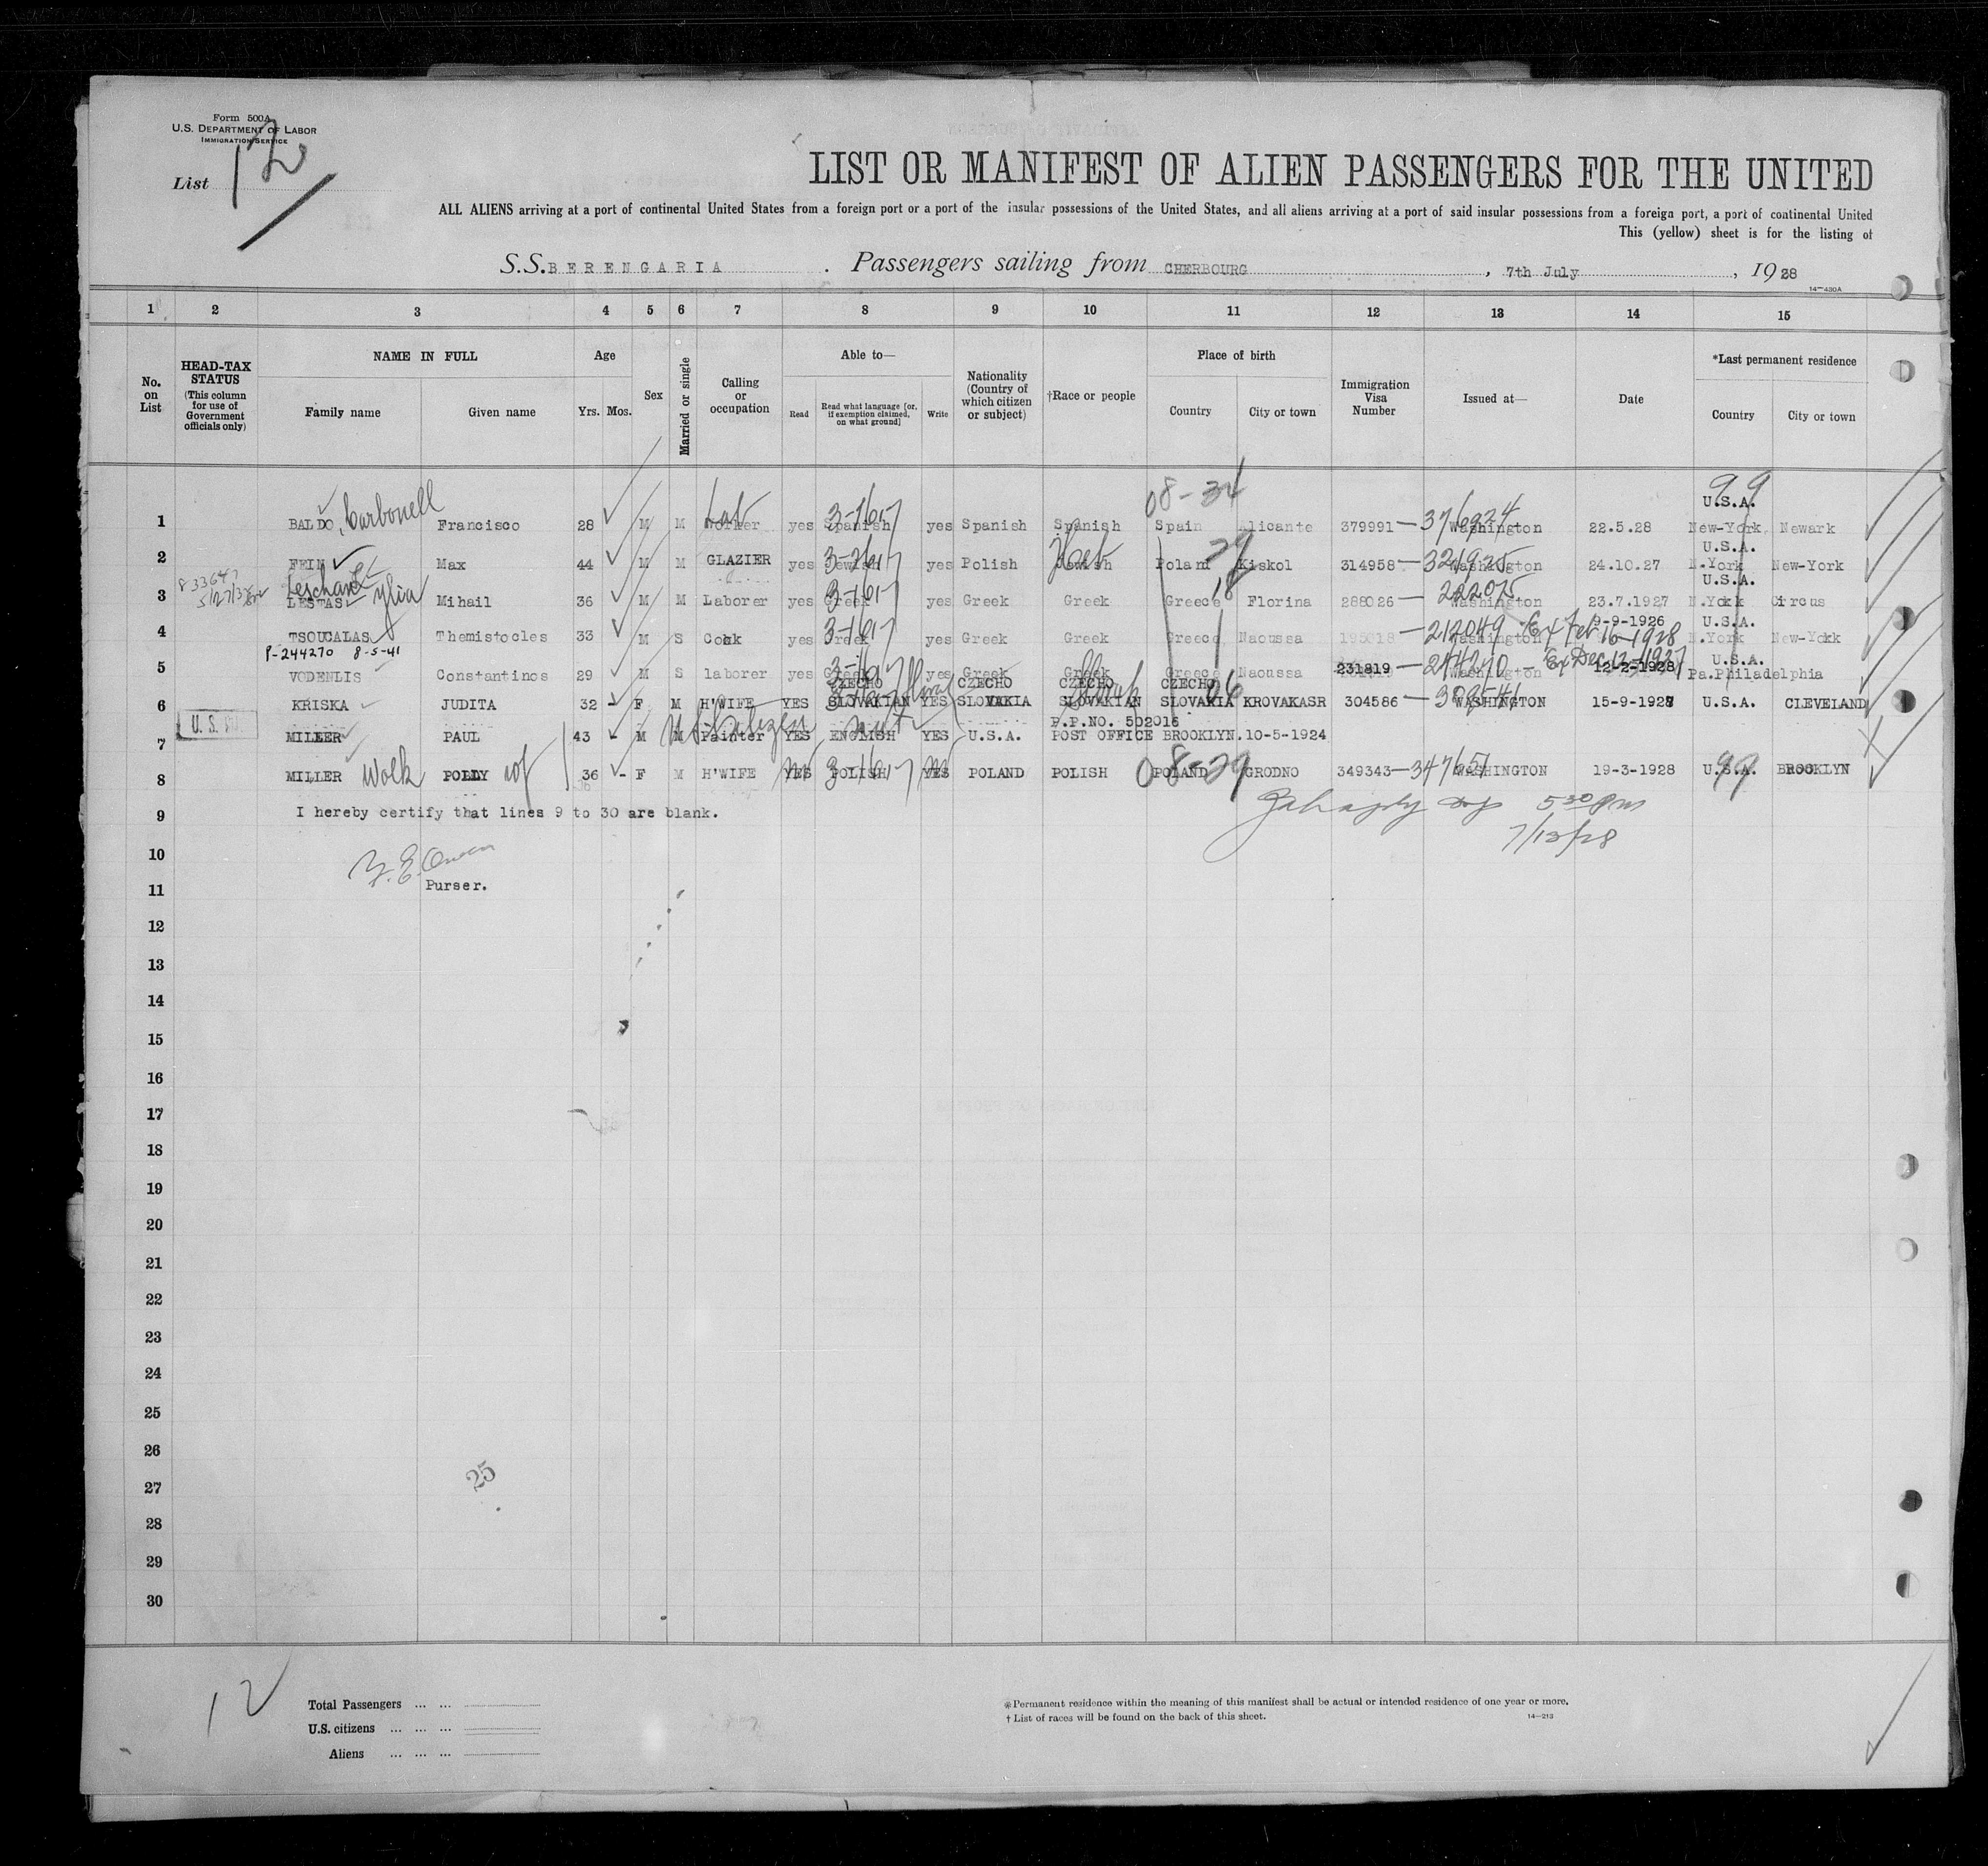 Form 500A
U.S. DEPARTMENT OF LABOR
IMMIGRATION SERVICE
List 12
LIST OR MANIFEST OF ALIEN PASSENGERS FOR THE UNITED
ALL ALIENS arriving at a port of continental United States from a foreign port or a port of the insular possessions of the United States, and all aliens arriving at a port of said insular possessions from a foreign port, a port of continental United
This (yellow) sheet is for the listing of
S.S. BERENGARIA . Passengers sailing from CHERBOURG , 7th July , 1928
14—430A
1 2 3 4 5 6 7 8 9 10 11 12 13 14 15
No. on List
HEAD-TAX STATUS (This column for use of Government officials only)
NAME IN FULL Family name Given name
Age Yrs. Mos.
Sex
Married or single
Calling or occupation
Able to— Read Read what language [or, if exemption claimed, on what ground] Write
Nationality (Country of which citizen or subject)
†Race or people
Place of birth Country City or town
Immigration Visa Number
Issued at—
Date
*Last permanent residence Country City or town
08-34 99
U.S.A.
1 BALDO, Carbonell Francisco 28 M M Worker yes Spanish yes Spanish Spanish Spain Alicante 379991 — 376924 Washington 22.5.28 New-York. Newark
U.S.A.
2 FEIN Max 44 M M GLAZIER yes Jewish yes Polish Jewish Poland Kiskol 314958 — 321925 Washington 24.10.27 N.York New-York
U.S.A.
3 LESTAS Mihail 36 M M Laborer yes Greek yes Greek Greek Greece Florina 288026 — 222075 Washington 23.7.1927 N.York Circus
9-9-1926 U.S.A.
4 TSOUCALAS Themistocles 33 M S Cook yes Greek yes Greek Greek Greece Naoussa — 212049 Washington Ex Feb 16-1928 N.York New-York
P-244270 8-5-41
U.S.A.
5 VODENLIS Constantinos 29 M S laborer yes Greek yes Greek Greek Greece Naoussa 231819 — 244270 Washington Ex Dec 12-1927 12-2-1928 Pa.Philadelphia
CZECHO CZECHO CZECHO CZECHO
6 KRISKA JUDITA 32 - F M H'WIFE YES SLOVAKIAN YES SLOVAKIA SLOVAKIAN SLOVAKIA KROVAKASR 304586 — WASHINGTON 15-9-1927 U.S.A. CLEVELAND
P.P.NO. 502016
7 MILLER PAUL 43 - M M Painter YES ENGLISH YES U.S.A. POST OFFICE BROOKLYN. 10-5-1924
8 MILLER Wolk POLLY wf 36 - F M H'WIFE YES POLISH YES POLAND POLISH POLAND GRODNO 349343 — 347651 WASHINGTON 19-3-1928 U.S.A. BROOKLYN
9 I hereby certify that lines 9 to 30 are blank.
5 30 pm
7/13/28
10
Purser.
11
12
13
14
15
16
17
18
19
20
21
22
23
24
25
26
25
27
28
29
30
12
Total Passengers ... ...
U.S. citizens ... ... ...
Aliens ... ... ...
*Permanent residence within the meaning of this manifest shall be actual or intended residence of one year or more.
† List of races will be found on the back of this sheet.
14—213